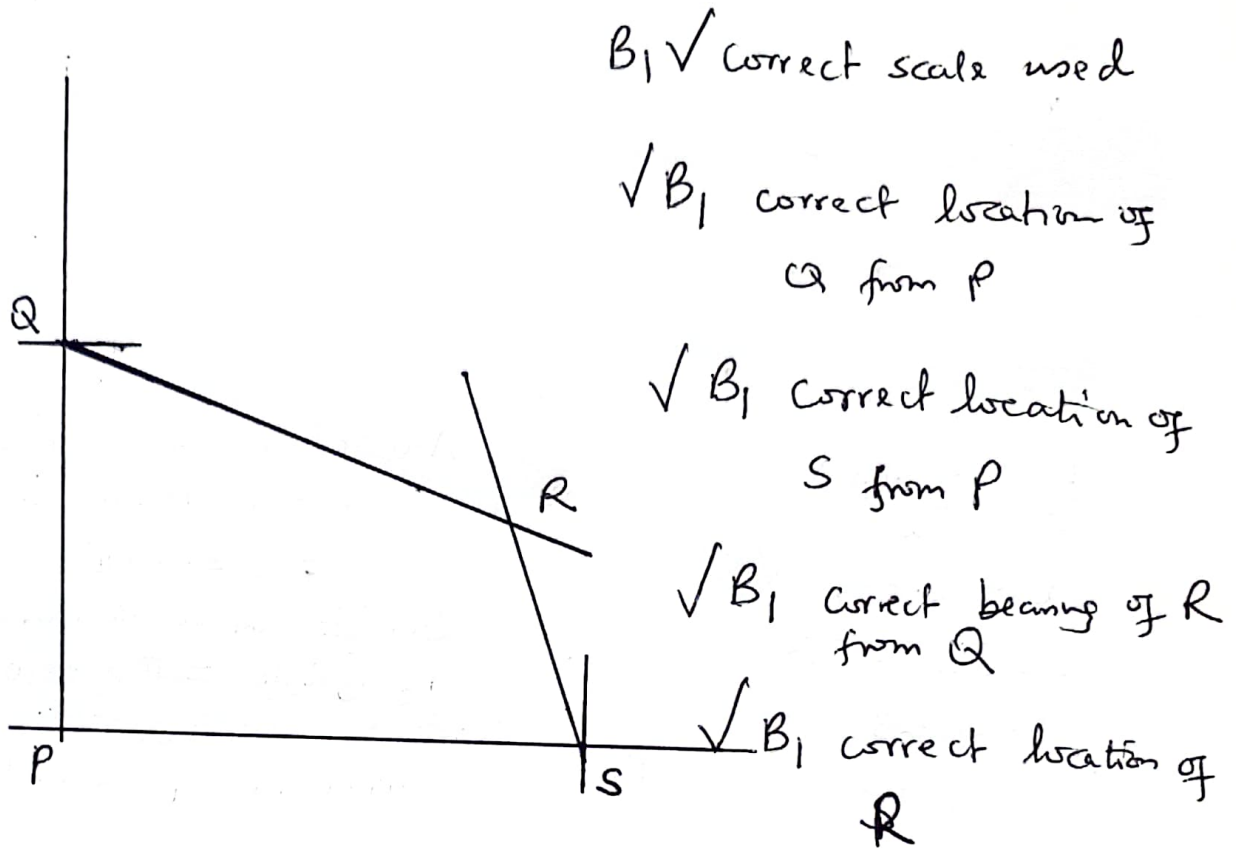 B₁ √ correct scale used
√ B₁ correct location of
Q from P
Q
√ B₁ correct location of
S from P
R
√ B₁ correct bearing of R
from Q
√ B₁ correct location of
R
P
S